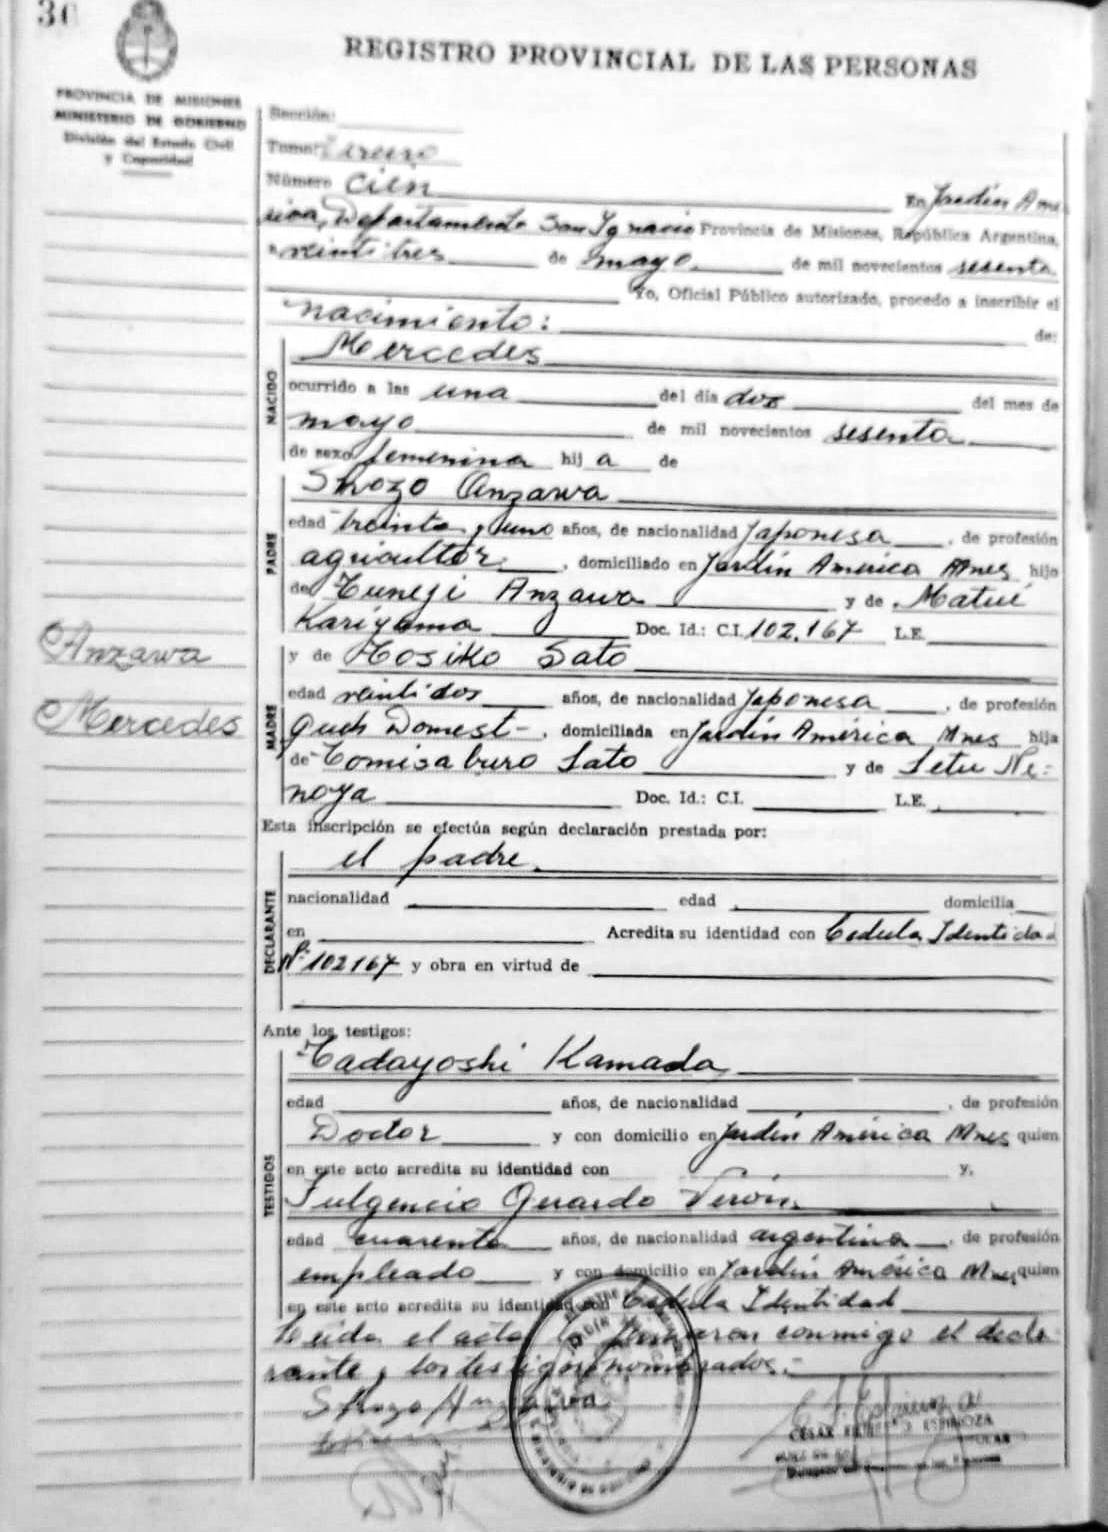 REGISTRO PROVINCIAL DE LAS PERSONAS
PROVINCIA DE MISIONES
MINISTERIO DE GOBIERNO
División del Estado Civil
y Capacidad
Sección:
Tomo:
Número Cien En Jardín Amé
rica, Departamento San Ignacio Provincia de Misiones, República Argentina,
a veintitres de mayo de mil novecientos sesenta
Yo, Oficial Público autorizado, procedo a inscribir el
nacimiento: de:
NACIDO
Mercedes
ocurrido a las una del día dos del mes de
mayo de mil novecientos sesenta
de sexo femenina hij a de
PADRE
Shozo Anzawa
edad treinta y uno años, de nacionalidad Japonesa, de profesión
agricultor, domiciliado en Jardín América Mnes hijo
de Tuneji Anzawa y de Matué
Kariyama Doc. Id.: C.I. 102.167 L.E.
Anzawa
Mercedes
MADRE
y de Tosiko Sato
edad veintidos años, de nacionalidad Japonesa, de profesión
queh Domest-, domiciliada en Jardín América Mnes hija
de Tomisaburo Sato y de Setu Ne=
noya Doc. Id.: C.I. L.E.
Esta inscripción se efectúa según declaración prestada por:
DECLARANTE
el padre.
nacionalidad edad domicilia
en Acredita su identidad con Cedula Identidad
Nº 102167 y obra en virtud de
Ante los testigos:
TESTIGOS
Tadayoshi Kamada
edad años, de nacionalidad , de profesión
Doctor y con domicilio en Jardín América Mnes quien
en este acto acredita su identidad con y,
Fulgencio Gerardo
edad cuarenta años, de nacionalidad argentina, de profesión
empleado y con domicilio en Jardín América Mnes quien
en este acto acredita su identidad con Cedula Identidad
Leida el acta la firmaron conmigo el decla
rante y los testigos nombrados.-
Shozo Anzawa
ESPINOZA